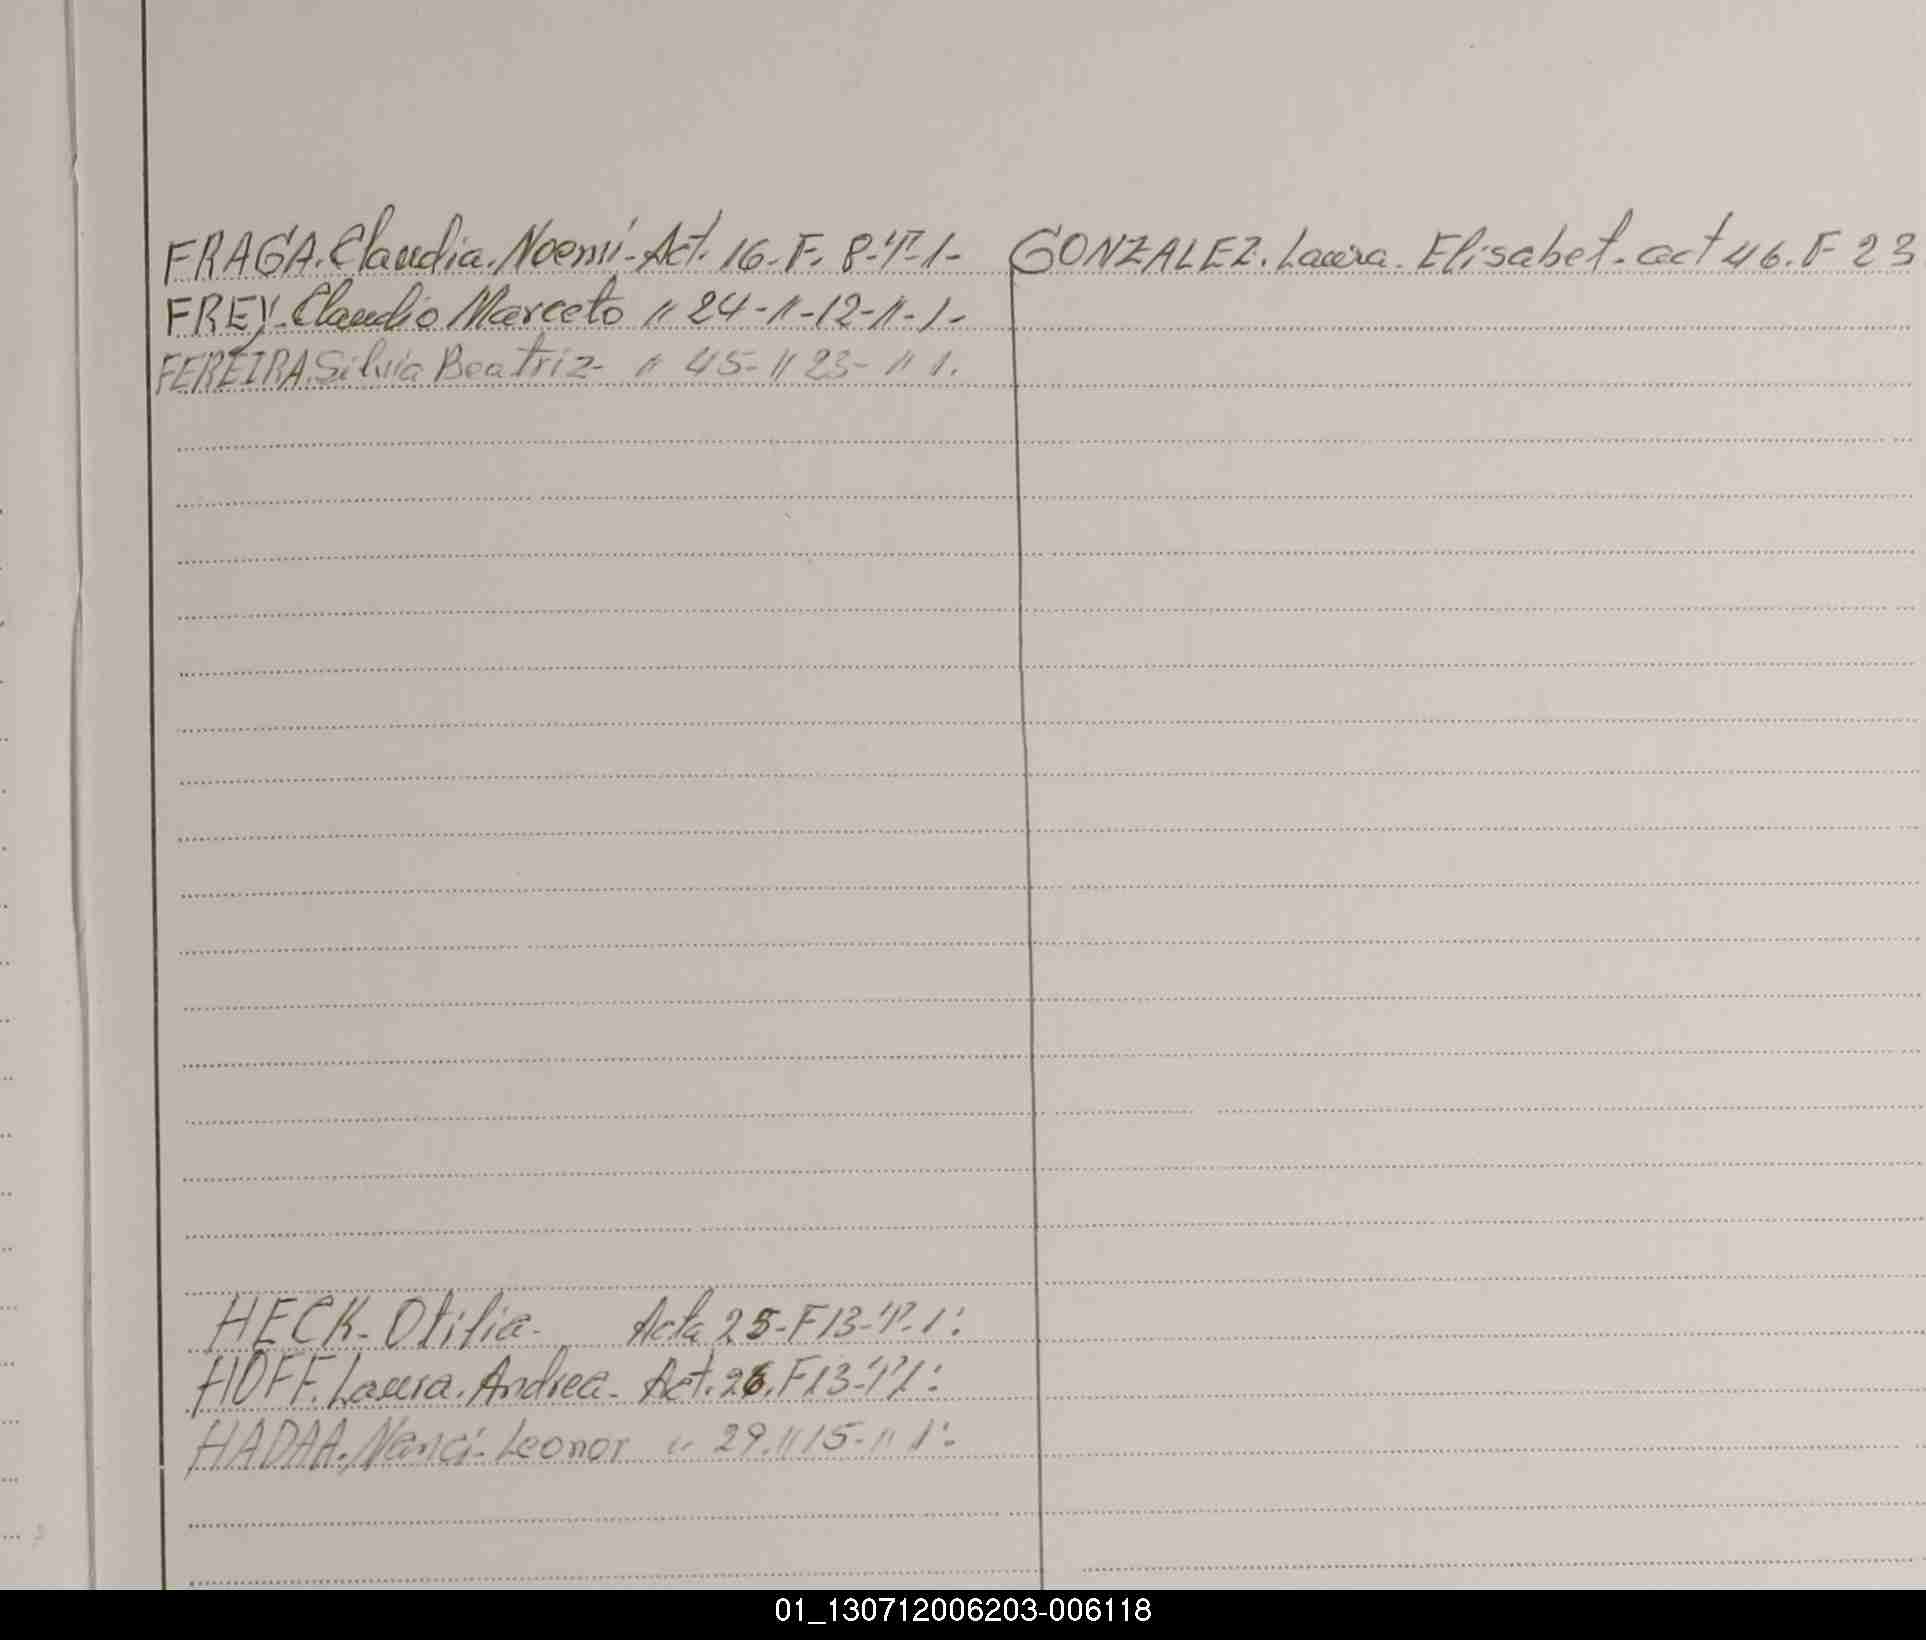 FRAGA. Claudia. Noemí - Act. 16 - F. 8 - T - 1 -
FREY. Claudio Marcelo " 24 - " - 12 - " - 1 -
FEREIRA. Silvia Beatriz - " 45 - " 23 - " 1.
GONZALEZ. Laura. Elisabet - act 46. F 23
HECK - Otilia - Acta 25 - F 13 - T - 1 :
HOFF. Laura. Andrea - Act. 26. F 13 - T 1 :
HADAA. Nanci - Leonor " 29. " 15 - " 1 :
01_130712006203-006118